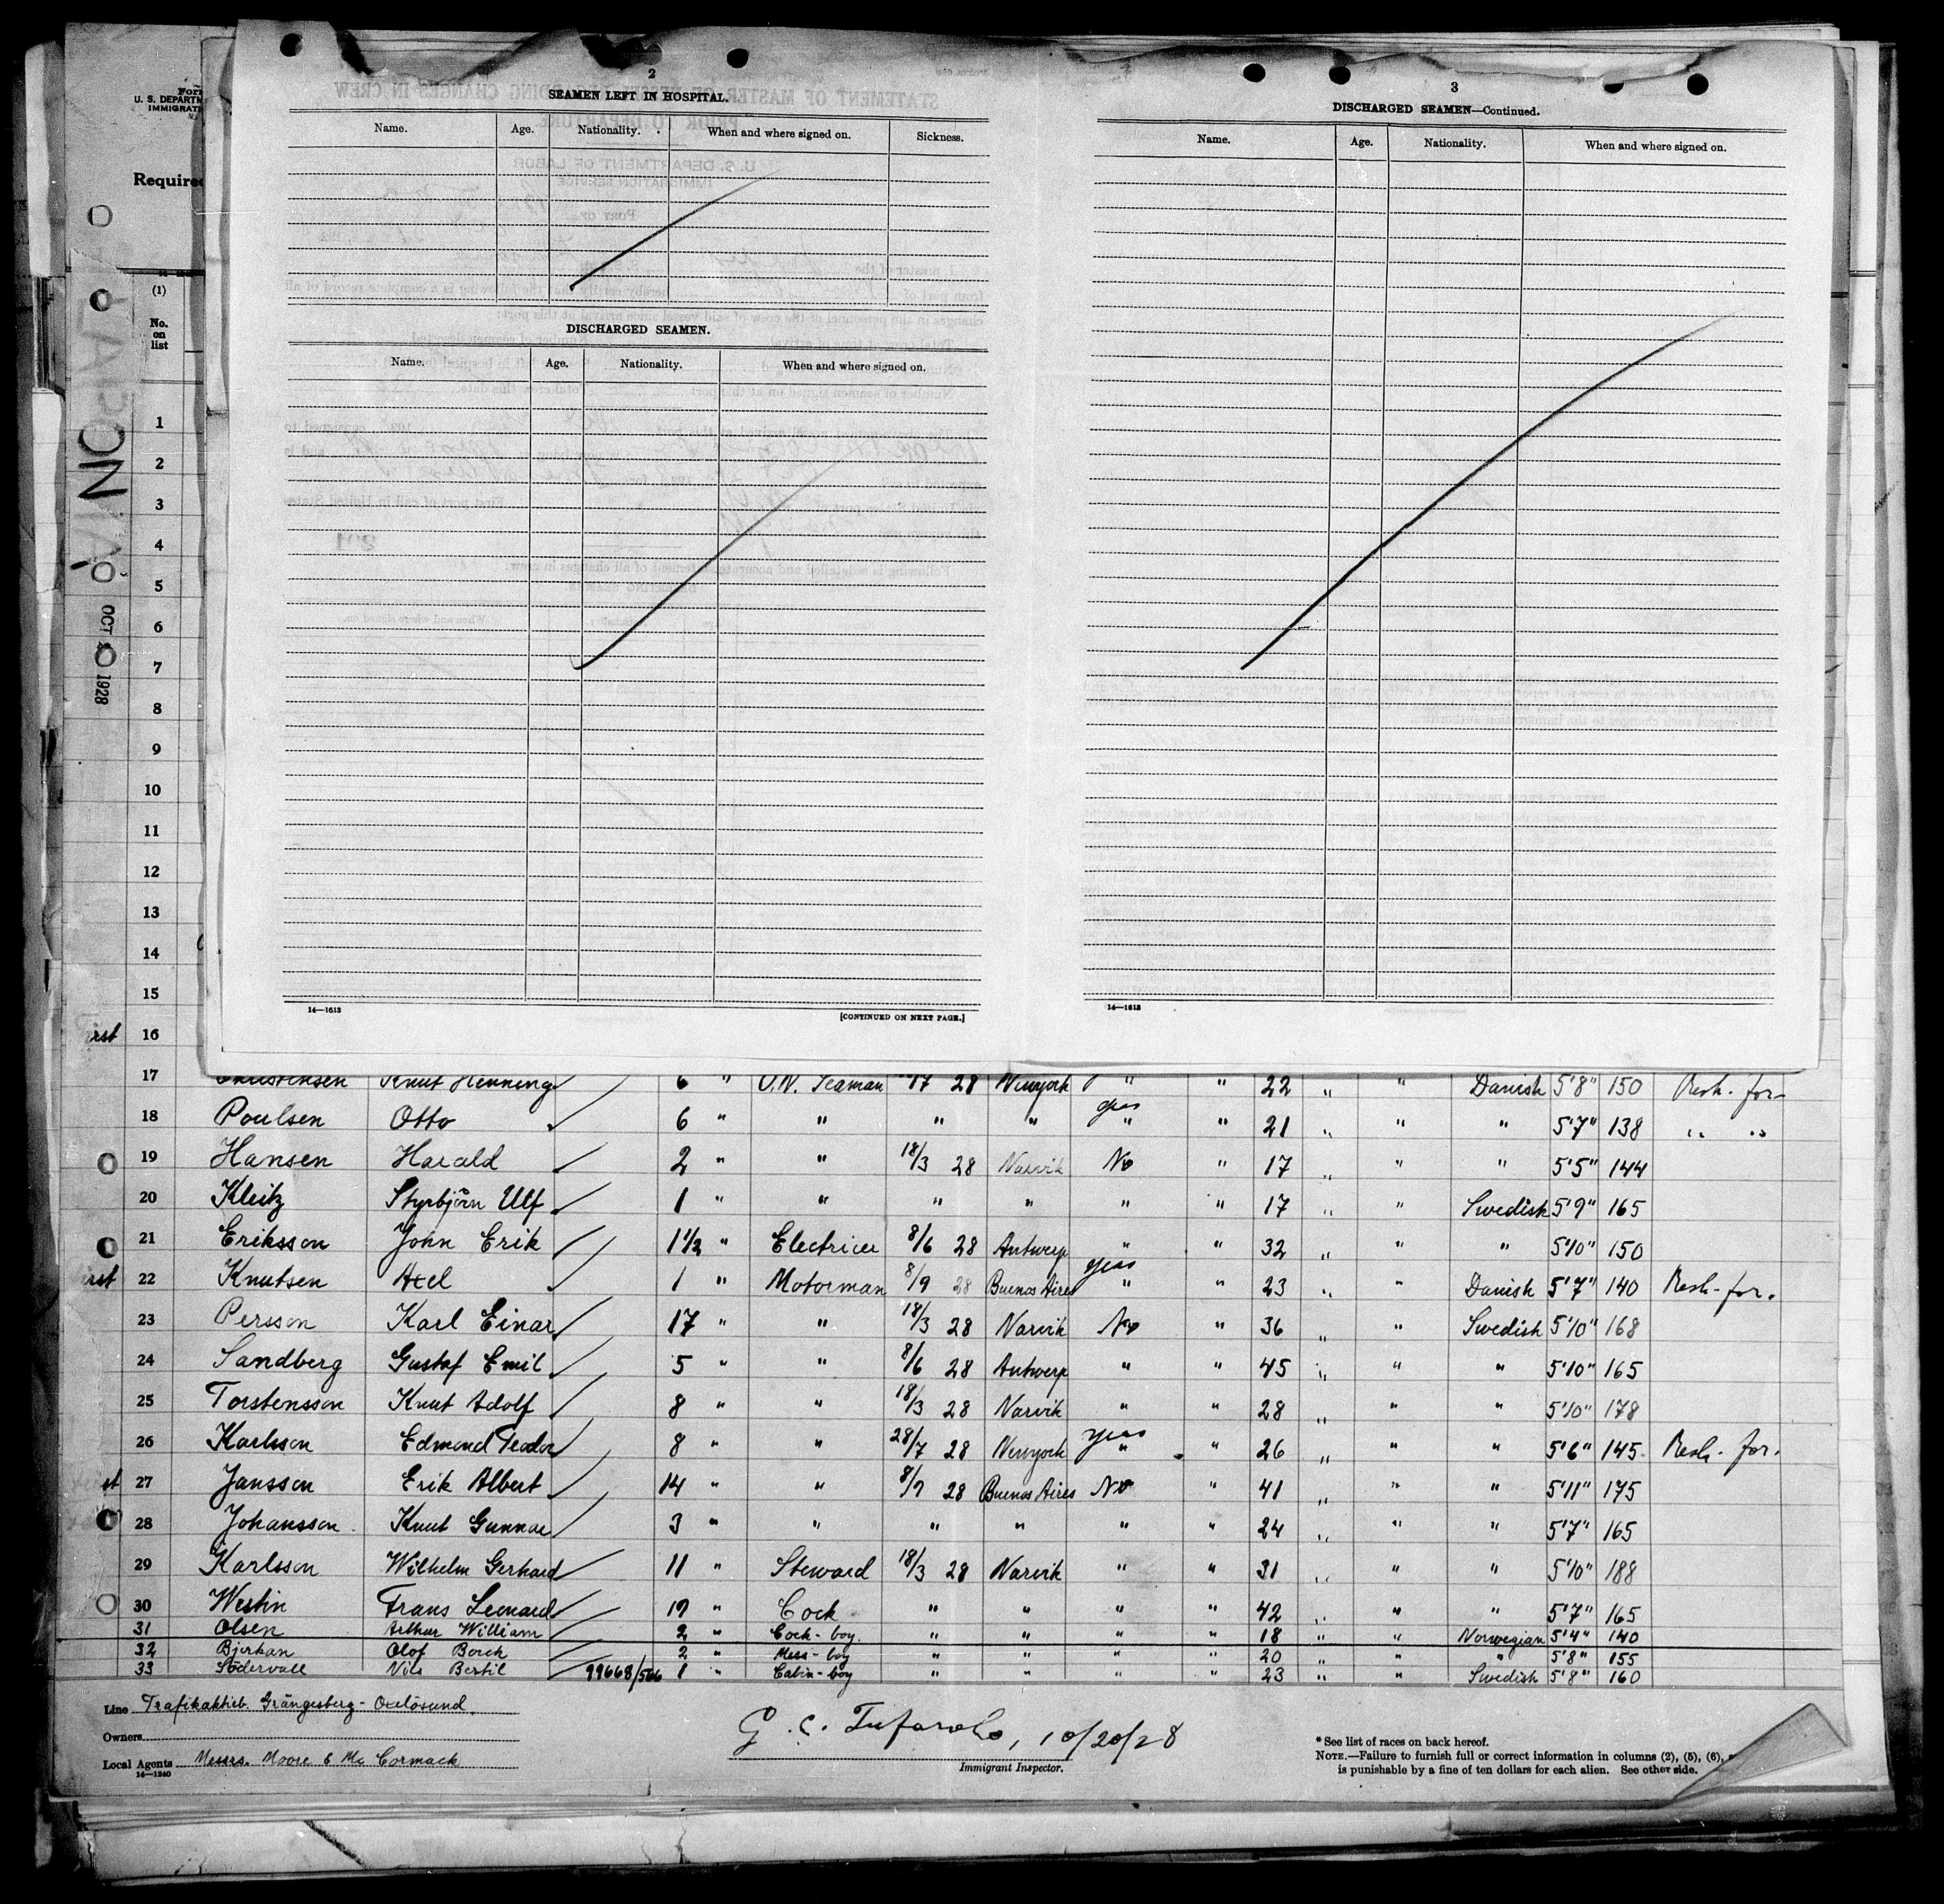 Form
U. S. DEPARTM
IMMIGRATI
Required
(1)
No.
on
list
OCT 20 1928
2
SEAMEN LEFT IN HOSPITAL.
Name. Age. Nationality. When and where signed on. Sickness.
DISCHARGED SEAMEN.
Name. Age. Nationality. When and where signed on.
14—1613
[CONTINUED ON NEXT PAGE.]
3
DISCHARGED SEAMEN—Continued.
Name. Age. Nationality. When and where signed on.
14—1613
1
2
3
4
5
6
7
8
9
10
11
12
13
14
15
16
17 Christensen Knut Henning 6 " O.N. Seaman 17 28 Newyork " " 22 " " Danish 5'8" 150 Resh. for.
18 Poulsen Otto 6 " " " " yes " " 21 " " " 5'7" 138 " "
19 Hansen Harald 2 " " 18/3 28 Narvik No " 17 " " " 5'5" 144
20 Kleitz Styrbjörn Ulf 1 " " " " " " 17 " " Swedish 5'9" 165
21 Eriksson John Erik 1 1/2 " Electricer 8/6 28 Antwerp " " 32 " " " 5'10" 150
22 Knutsen Axel 1 " Motorman 8/9 28 Buenos Aires yes " " 23 " Danish 5'7" 140 Resh. for.
23 Persson Karl Einar 17 " " 18/3 28 Narvik No " 36 " " Swedish 5'10" 168
24 Sandberg Gustaf Emil 5 " " 8/6 28 Antwerp " " 45 " " " 5'10" 165
25 Torstensson Knut Adolf 8 " " 18/3 28 Narvik " " 28 " " " 5'10" 178
26 Karlsson Edmond Teodor 8 " " 28/7 28 Newyork yes " " 26 " " " 5'6" 145 Resh. for.
27 Jansson Erik Albert 14 " " 8/9 28 Buenos Aires No " 41 " " " 5'11" 175
28 Johansson Knut Gunnar 3 " " " " " " 24 " " " 5'7" 165
29 Karlsson Wilhelm Gerhard 11 " Steward 18/3 28 Narvik " " 31 " " " 5'10" 188
30 Westin Frans Leonard 19 " Cock " " " " 42 " " " 5'7" 165
31 Olsen Arthur William 2 " Cock-boy " " " " 18 " " Norwegian 5'4" 140
32 Bjerkan Olof Borch 2 " Mess-boy " " " " 20 " " " 5'8" 155
33 Södervall Nils Bertil 99668/566 1 " Cabin-boy " " " " 23 " " Swedish 5'8" 160
Line Trafikaktieb. Grängesberg-Oxelösund.
Owners
Local Agents Messrs. Moore & Mc Cormack
14—1240
10/20/28
Immigrant Inspector.
* See list of races on back hereof.
NOTE.—Failure to furnish full or correct information in columns (2), (5), (6),
is punishable by a fine of ten dollars for each alien. See other side.